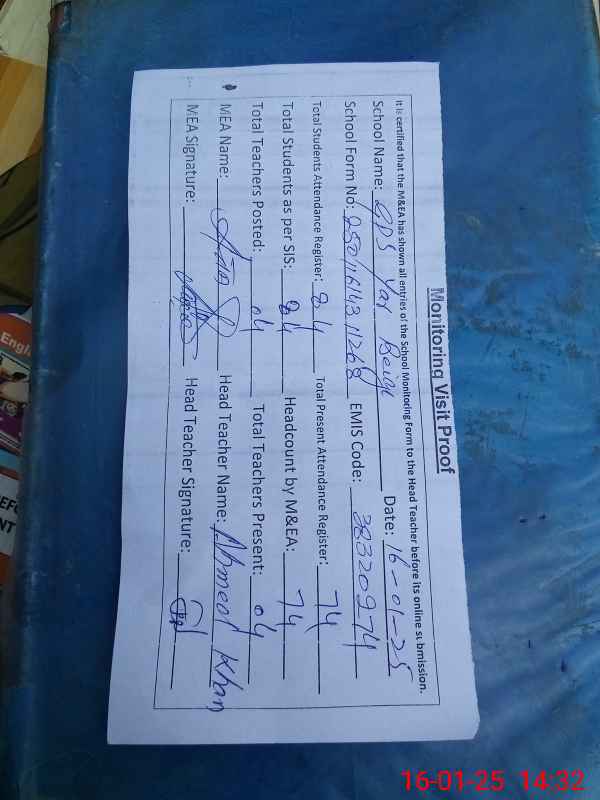 Monitoring Visit Proof
It is certified that the M&EA has shown all entries of the School Monitoring Form to the Head Teacher before its online submission.
School Name: GPS Yar Beig Date: 16-01-25
School Form No: 25011614311268 EMIS Code: 38320974
Total Students Attendance Register: 84 Total Present Attendance Register: 74
Total Students as per SIS: 84 Headcount by M&EA: 74
Total Teachers Posted: 04 Total Teachers Present: 04
MEA Name: Head Teacher Name: Ahmed Khan
MEA Signature: Head Teacher Signature:
Engl
NT
16-01-25 14:32